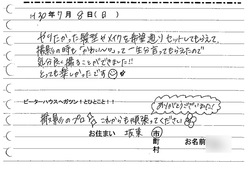 H30年7月8日(日)
やりたかった髪型やメイクを希望通りセットしてもらえて、
撮影の時も「かわいい〜」って一生分言ってもらえたので
気分良く撮ることができました!!
とっても楽しかったです
ピーターハウスへガツン!ひとこと!!
ありがとうございました!
撮影のプロ これからも頑張ってください
お住まい 坂東 市 町 村 お名前